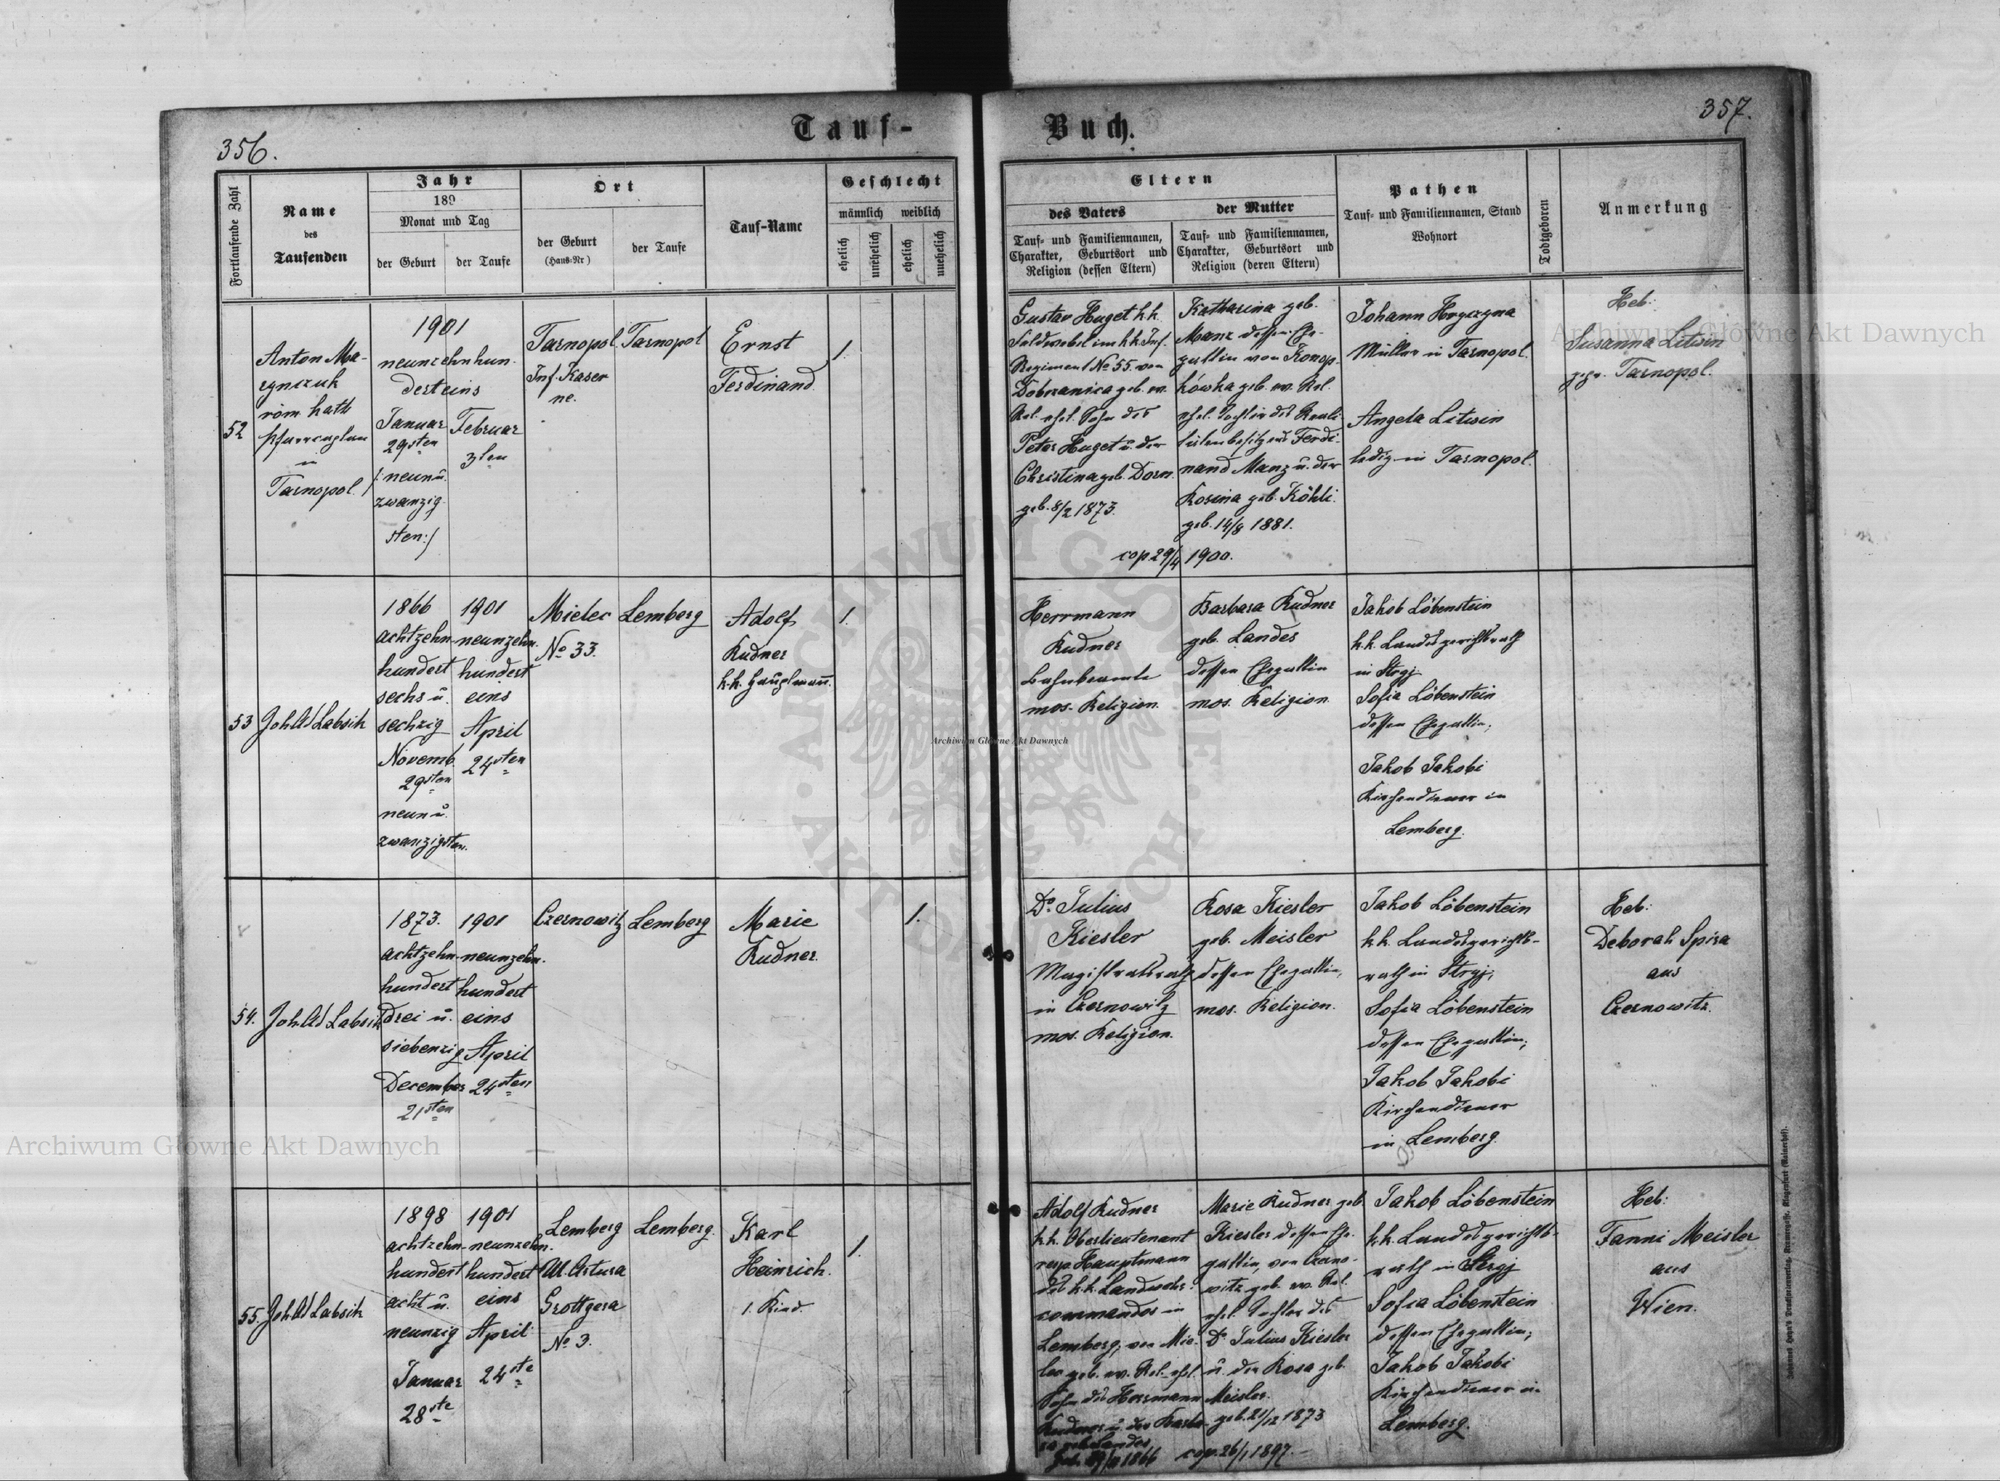 356.
Tauf-
Buch.
357.
Fortlaufende Zahl
Name
des
Taufenden
Jahr
189
Monat und Tag
der Geburt
der Taufe
Ort
der Geburt
(Haus-Nr)
der Taufe
Tauf-Name
Geschlecht
männlich
weiblich
ehelich
unehelich
ehelich
unehelich
Eltern
des Vaters
Tauf- und Familiennamen,
Charakter, Geburtsort und
Religion (dessen Eltern)
der Mutter
Tauf- und Familiennamen,
Charakter, Geburtsort und
Religion (deren Eltern)
Pathen
Tauf- und Familiennamen, Stand
Wohnort
Todtgeboren
Anmerkung
52
Anton Ma-
röm. kath
Tarnopol.
1901
neunzehnhun-
derteins
Januar
29sten
/: neun u.
zwanzig-
sten:/
Februar
3ten
Tarnopol.
Inf. Kaser
ne.
Tarnopol
Ernst
Ferdinand.
1.
Gustav Huget k.k.
Feldwebel im k.k. Inf.
Regiment No 55. von
Dobrzanica geb. ev.
Rel. ehel. Sohn des
Peter Huget u. der
Christina geb. Dorn.
geb. 8/2 1873.
Katharina geb.
Manz dessen Ehe-
gattin von Konop-
kówka geb. ev. Rel.
ehel. Tochter des Reali-
tätenbesitzers Ferdi-
nand Manz u. der
Rosina geb. Köhli.
geb. 14/8 1881.
cop 29/4 1900.
Johann Hryczyna
Müller in Tarnopol.
Angela Litwin
ledig in Tarnopol.
Heb:
Susanna Litwin
Tarnopol.
53
Joh. Labsik
1866
achtzehn-
hundert
sechs u.
sechzig
Novemb.
29sten
neun u.
zwanzigsten.
1901
neunzehn-
hundert
eins
April
24sten
Mielec
No 33.
Lemberg
Adolf
Rudner
k.k. Hauptmann.
1.
Herrmann
Rudner
Bahnbeamte
mos. Religion.
Barbara Rudner
geb. Landes
dessen Ehegattin
mos. Religion.
Jakob Löbenstein
k.k. Landesgerichtsrath
in Stryj
Sofia Löbenstein
dessen Ehegattin;
Jakob Jakobi
Kirchendiener in
Lemberg.
54.
Joh. Labsik
1873.
achtzehn-
hundert
drei u.
siebenzig
December
21sten
1901
neunzehn-
hundert
eins
April
24sten
Czernowitz
Lemberg
Marie
Rudner.
1.
Dr. Julius
Kiesler
Magistratsrath
in Czernowitz
mos. Religion.
Rosa Kiesler
geb. Meisler
dessen Ehegattin,
mos. Religion.
Jakob Löbenstein
k.k. Landesgerichts-
rath in Stryj;
Sofia Löbenstein
dessen Ehegattin;
Jakob Jakobi
Kirchendiener
in Lemberg.
Heb:
Deborah Spira
aus
Czernowitz.
55.
Joh. Labsik
1898
achtzehn-
hundert
acht u.
neunzig
Januar
28ste
1901
neunzehn-
hundert
eins
April
24ste
Lemberg
Ul. Artura
Grottgera
No 3.
Lemberg.
Karl
Heinrich.
1. Kind.
1.
Adolf Rudner
k.k. Oberlieutenant
resp. Hauptmann
des k.k. Landwehr-
commandos in
Lemberg, von Mie-
lec geb. ev. Rel. ehel.
Sohn des Herrmann
Rudner u. der Barba-
ra geb. Landes
geb. 29/11 1866
Marie Rudner geb.
Kiesler dessen Ehe-
gattin, von Czerno-
witz geb. ev. Rel.
ehel. Tochter des
Dr. Julius Kiesler
u. der Rosa geb.
Meisler.
geb. 21/12 1873
cop. 26/1 1897.
Jakob Löbenstein
k.k. Landesgerichts-
rath in Stryj
Sofia Löbenstein
dessen Ehegattin;
Jakob Jakobi
Kirchendiener in
Lemberg.
Heb:
Fanni Meisler
aus
Wien.
Archiwum Główne Akt Dawnych
Archiwum Główne Akt Dawnych
Archiwum Główne Akt Dawnych
ARCHIWUM GŁÓWNE
AKT DAWNYCH